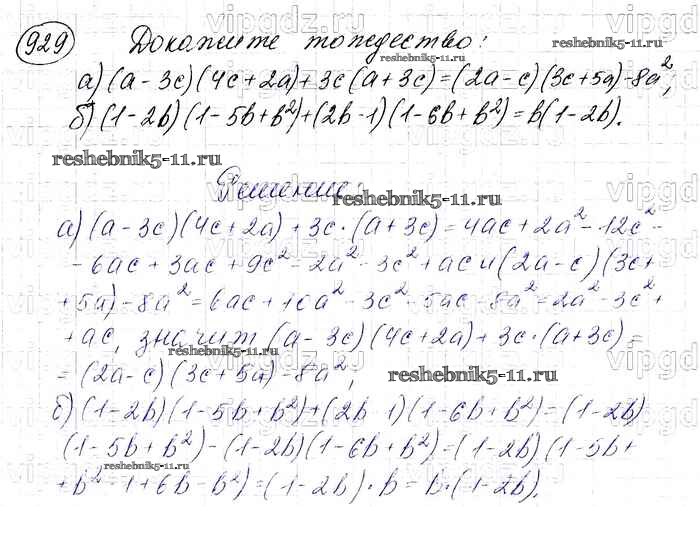 929 Докажите тождество:
а) (a-3c)(4c+2a)+3c(a+3c)=(2a-c)(3c+5a)-8a²;
б) (1-2b)(1-5b+b²)+(2b-1)(1-6b+b²)=b(1-2b).
Решение:
а) (a-3c)(4c+2a)+3c·(a+3c)=4ac+2a²-12c²-
-6ac+3ac+9c²=2a²-3c²+ac и (2a-c)(3c+
+5a)-8a²=6ac+10a²-3c²-5ac-8a²=2a²-3c²+
+ac, значит (a-3c)(4c+2a)+3c·(a+3c)=
=(2a-c)(3c+5a)-8a²;
б) (1-2b)(1-5b+b²)+(2b-1)(1-6b+b²)=(1-2b)
(1-5b+b²)-(1-2b)(1-6b+b²)=(1-2b)(1-5b+
+b²-1+6b-b²)=(1-2b)·b=b·(1-2b).
reshebnik5-11.ru
reshebnik5-11.ru
reshebnik5-11.ru
reshebnik5-11.ru
reshebnik5-11.ru
reshebnik5-11.ru
reshebnik5-11.ru